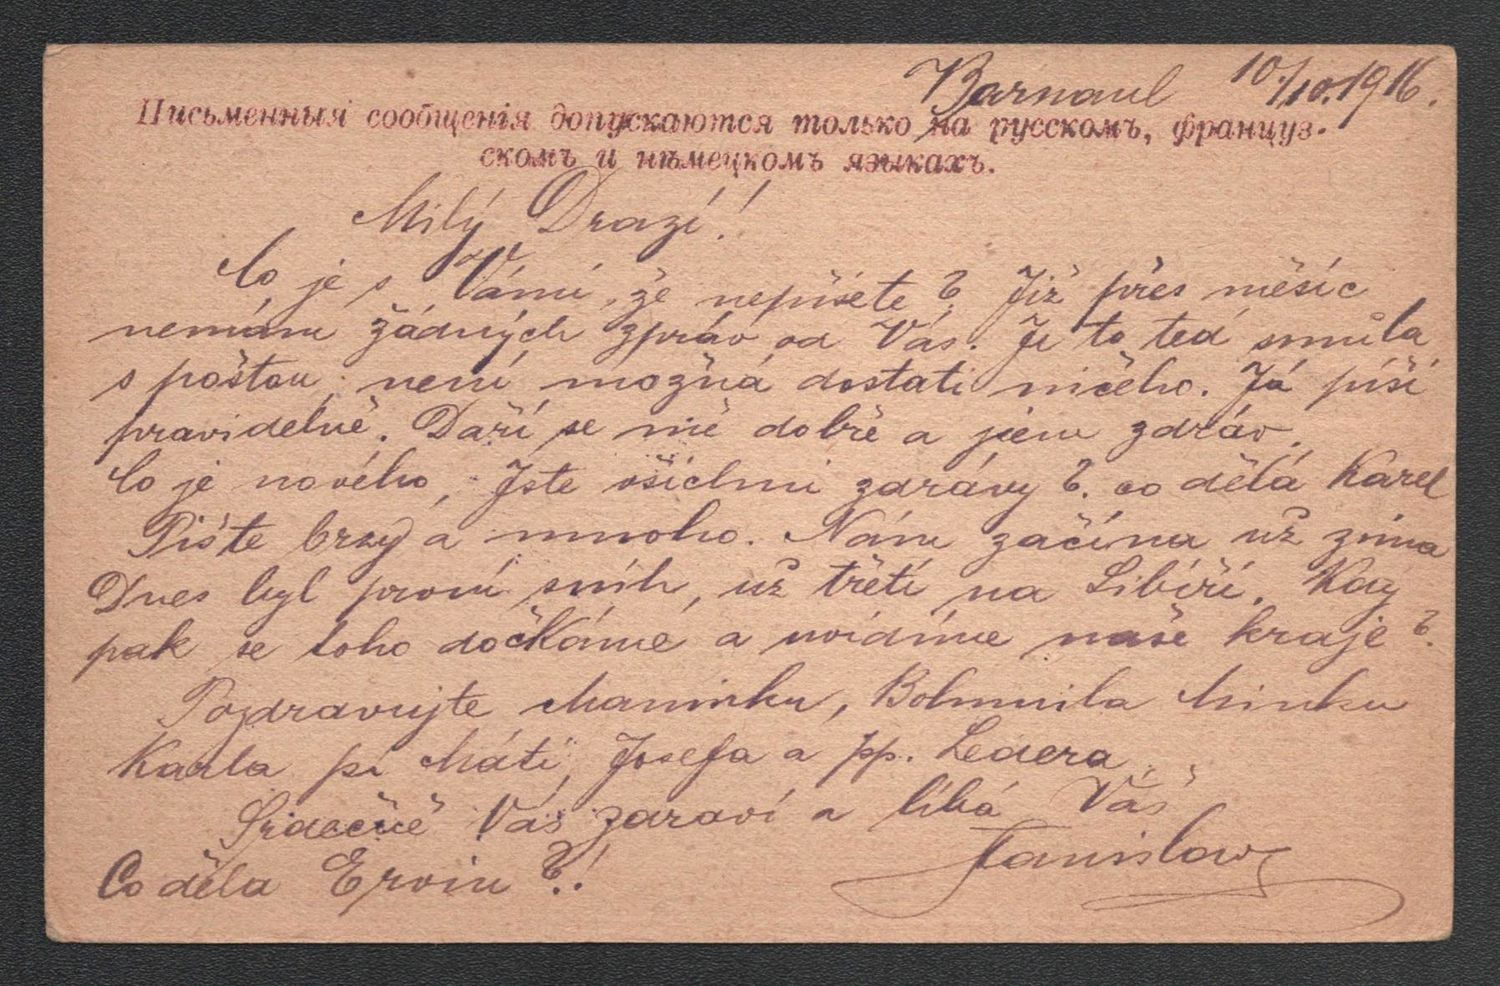 Barnaul 10./10.1916.
Письменныя сообщенія допускаются только на русскомъ, француз-
скомъ и нѣмецкомъ языкахъ.
Milý Drazí!
Co je s Vámi, že nepíšete? Již přes měsíc
nemám žádných zpráv od Vás. Je to teď smůla
s poštou, není možná dostati ničeho. Já píši
pravidelně. Daří se mě dobře a jsem zdráv.
Co je nového, Jste všichni zdrávy?. co dělá Karel
Pište brzy a mnoho. Nám začíná už zima
Dnes byl první sníh, už třetí na Sibíři. Kdy
pak se toho dočkáme a uvidíme naše kraje?
Pozdravujte Maminku, Bohumila Minku
Karla pí Máti, Josefa a pp. Ledera.
Srdečně Vás zdraví a líbá Váš
Stanislav
Co děla Ervin?!